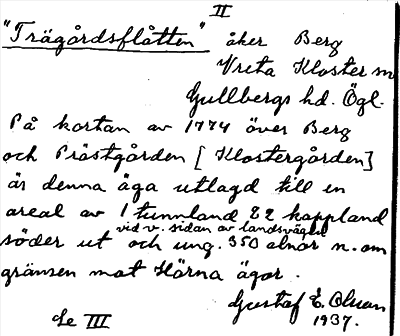 II
"Trägårdsflåtten" åker Berg
Vreta Kloster sn
Gullbergs hd. Ögl.
På kartan av 1774 över Berg
och Prästgården [Klostergården]
är denna äga utlagd till en
areal av 1 tunnland 22 kappland
vid v. sidan av landsvägen
söder ut och ung. 350 alnar n. om
gränsen mot Kärna ägor.
Gustaf E. Olsson
1937.
Se III